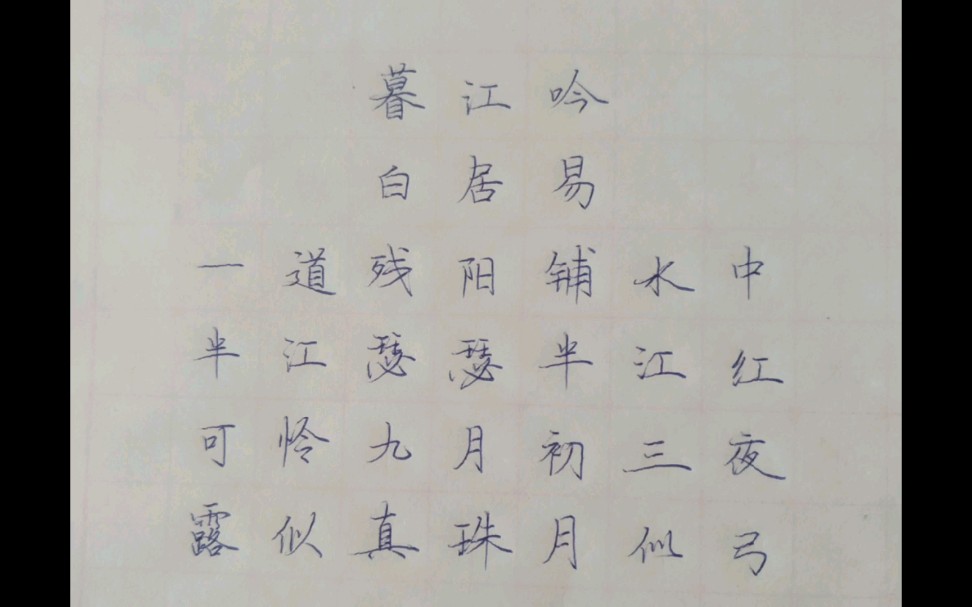 暮江吟
白居易
一道残阳铺水中
半江瑟瑟半江红
可怜九月初三夜
露似真珠月似弓